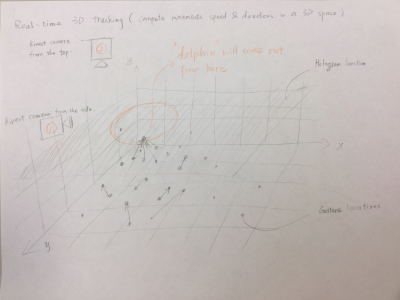 Real-time 3D Tracking (compute movements speed & directions in a 3D space)
Kinect camera
from the top.
2
"dolphin" will come out
from here
Hologram location
Kinect camera from the side
1
z
x
y
Gesture locations